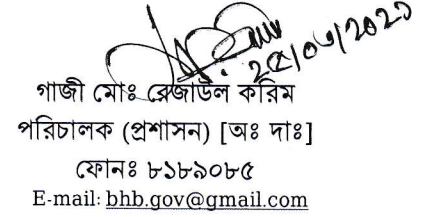 ২৫/০৩/২০২১
গাজী মোঃ রেজাউল করিম
পরিচালক (প্রশাসন) [অঃ দাঃ]
ফোনঃ ৮১৮৯০৮৫
E-mail: bhb.gov@gmail.com